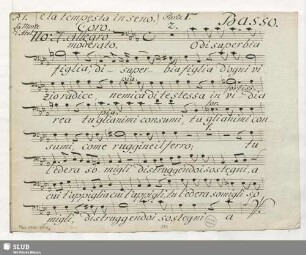 e la tempesta in seno. Parte 1.
La Morte Coro. 2. Basso.
d'Abel No: 7. Allegro
moderato. O di superbia
figlia, di superbia figlia d'ogni vi
zio radice nemica di te stessa in vidia
rea tu gli animi consumi, tu gli animi con
sumi, come ruggine il ferro; tu
l'edera so migli distruggendo i sostegni, a
cui t'appiglia cui t'appigli, tu l'edera somigli so
migli, distruggendo i sostegni a
SLUB